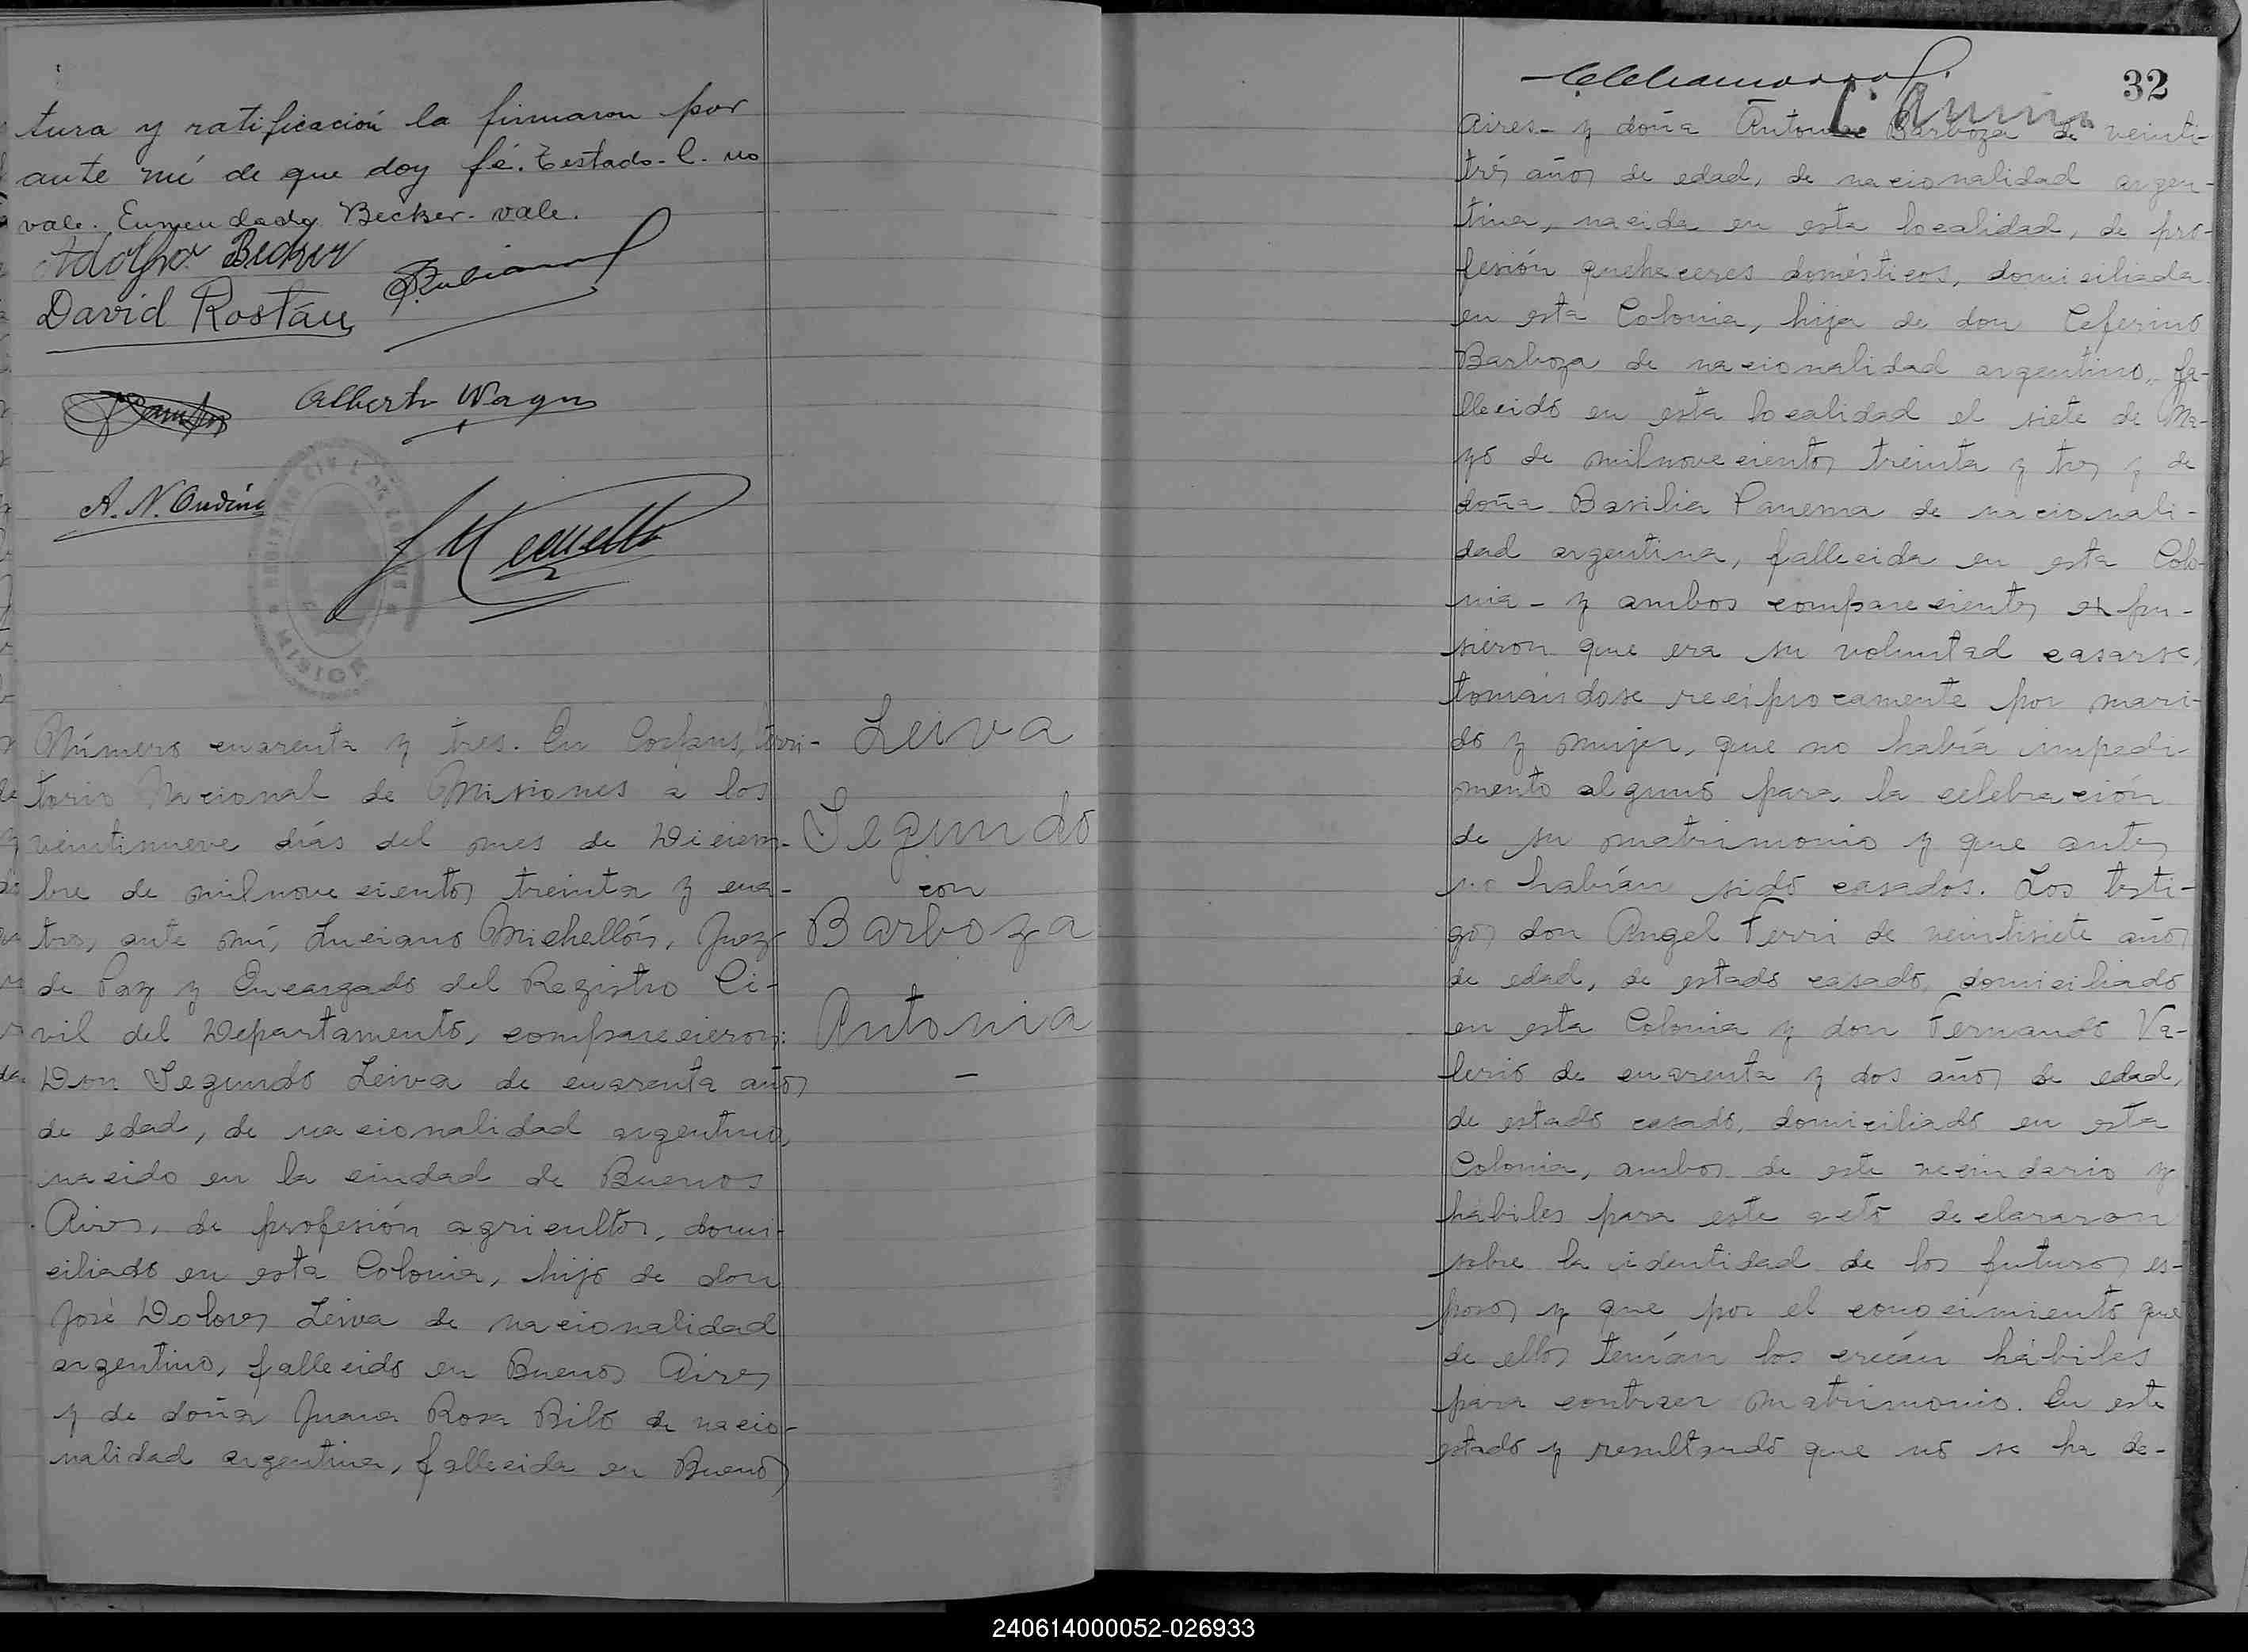 tura y ratificación la firmaron por
ante mí de que doy fé. Testado-l-no
vale. Enmendado Becker-vale.
Adolfo Becker
David Rostán
Alberto Wagn
A. N. Ondine
REGISTRO CIVIL
MISION
Número cuarenta y tres. En Corpus, terri-
torio Nacional de Misiones a los
veintinueve días del mes de Diciem-
bre de milnovecientos treinta y cua-
tro, ante mí, Luciano Michellón, Juez
de Paz y Encargado del Registro Ci-
vil del Departamento, comparecieron:
Don Segundo Leiva de cuarenta años
de edad, de nacionalidad argentino,
nacido en la ciudad de Buenos
Aires, de profesión agricultor, domi-
ciliado en esta Colonia, hijo de don
José Dolores Leiva de nacionalidad
argentino, fallecido en Buenos Aires
y de doña Juana Rosa Biló de nacio-
nalidad argentina, fallecida en Buenos
Leiva
Segundo
con
Barboza
Antonia
-
32
Aires- y doña Antonia Barboza de veinti-
trés años de edad, de nacionalidad argen-
tina, nacida en esta localidad, de pro-
fesión quehaceres domésticos, domiciliada
en esta Colonia, hija de don Ceferino
Barboza de nacionalidad argentino, fa-
llecido en esta localidad el siete de Ma-
yo de milnovecientos treinta y tres y de
doña Basilia Panema de nacionali-
dad argentina, fallecida en esta Colo-
nia- y ambos comparecientes expu-
sieron que era su voluntad casarse,
tomándose recíprocamente por mari-
do y mujer, que no había impedi-
mento alguno para la celebración
de su matrimonio y que antes
no habían sido casados. Los testi-
gos don Angel Ferri de veintisiete años
de edad, de estado casado, domiciliado
en esta Colonia y don Fernando Va-
lerio de cuarenta y dos años de edad,
de estado casado, domiciliado en esta
Colonia, ambos de este vecindario y
hábiles para este acto declararon
sobre la identidad de los futuros es-
posos y que por el conocimiento que
de ellos tenían los creían hábiles
para contraer matrimonio. En este
estado y resultando que no se ha de-
240614000052-026933